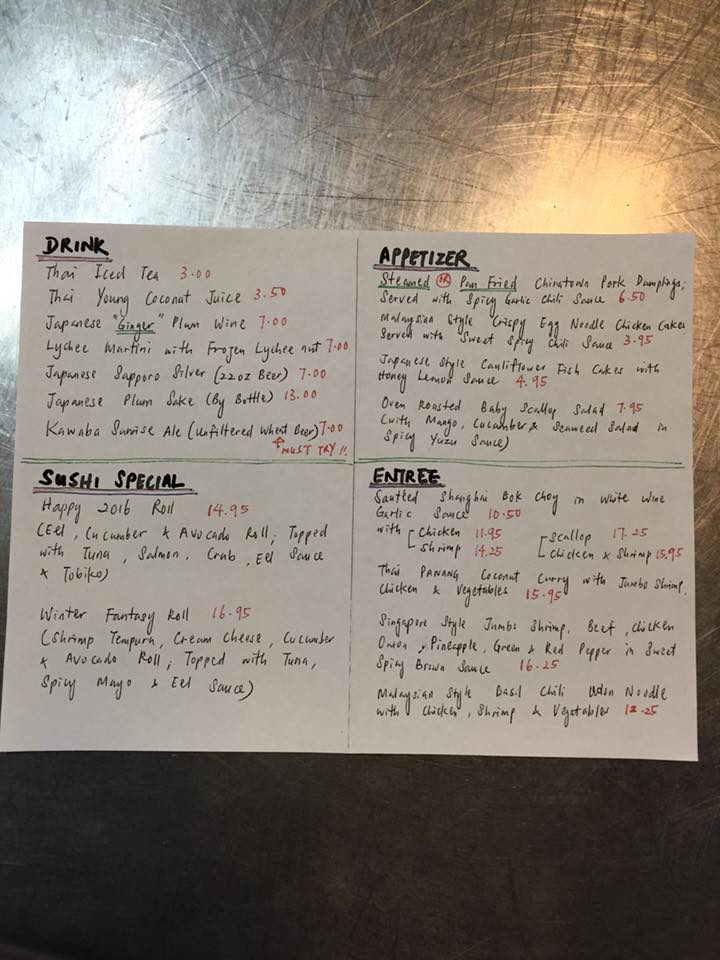 DRINK
Thai Iced Tea 3.00
Thai Young Coconut Juice 3.50
Japanese "Ginger" Plum Wine 7.00
Lychee Martini with Frozen Lychee nut 7.00
Japanese Sapporo Silver (22oz Beer) 7.00
Japanese Plum Sake (By Bottle) 13.00
Kawaba Sunrise Ale (Unfiltered Wheat Beer) 7.00
MUST TRY!!
APPETIZER
Steamed OR Pan Fried Chinatown Pork Dumplings;
Served with Spicy Garlic Chili Sauce 6.50
Malaysian Style Crispy Egg Noodle Chicken Cakes
Served with Sweet Spicy Chili Sauce 3.95
Japanese Style Cauliflower Fish Cakes with
Honey Lemon Sauce 4.95
Oven Roasted Baby Scallop Salad 7.95
(with Mango, Cucumber & Seaweed Salad in
Spicy Yuzu Sauce)
SUSHI SPECIAL
Happy 2016 Roll 14.95
(Eel, Cucumber & Avocado Roll; Topped
with Tuna, Salmon, Crab, Eel Sauce
& Tobiko)
Winter Fantasy Roll 16.95
(Shrimp Tempura, Cream Cheese, Cucumber
& Avocado Roll; Topped with Tuna,
Spicy Mayo & Eel Sauce)
ENTREE
Sautéed Shanghai Bok Choy in White Wine
Garlic Sauce 10.50
with Chicken 11.95 Scallop 17.25
Shrimp 14.25 Chicken & Shrimp 15.95
Thai PANANG Coconut Curry with Jumbo Shrimp,
Chicken & Vegetables 15.95
Singapore Style Jumbo Shrimp, Beef, Chicken
Onion, Pineapple, Green & Red Pepper in Sweet
Spicy Brown Sauce 16.25
Malaysian Style Basil Chili Udon Noodle
with Chicken, Shrimp & Vegetables 12.25